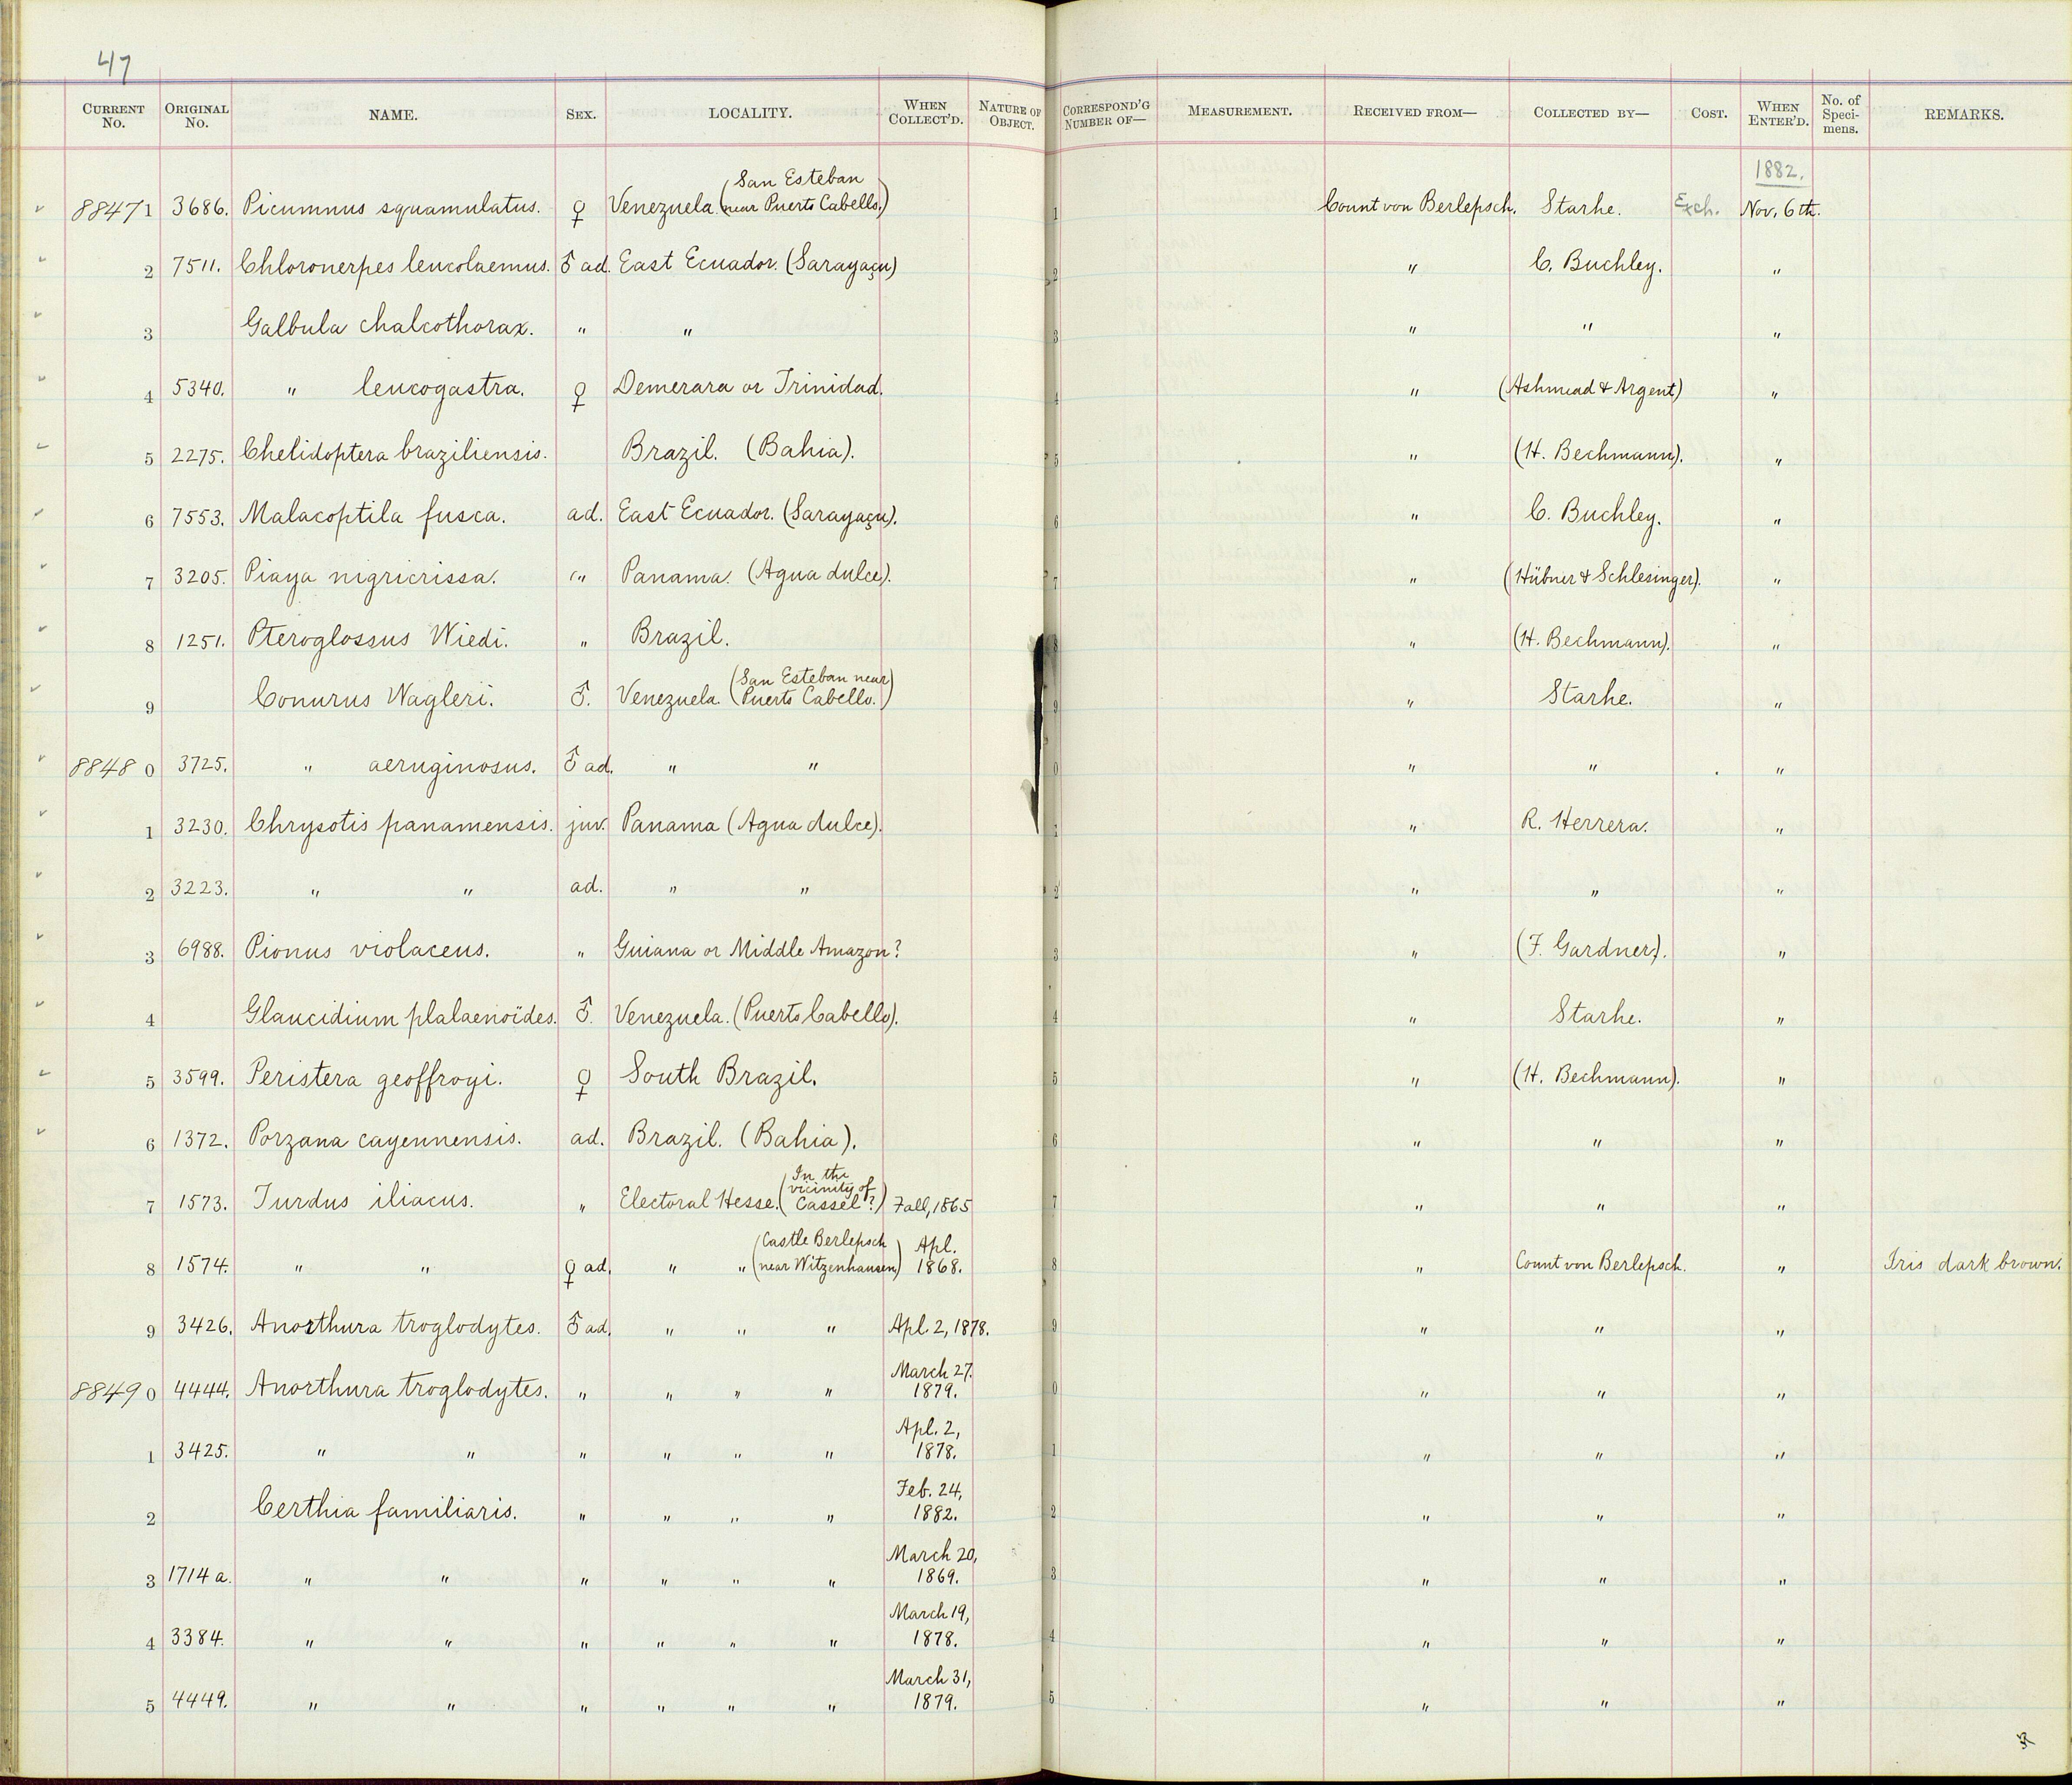 47
CURRENT No. ORIGINAL No. NAME. SEX. LOCALITY. WHEN COLLECT'D. NATURE OF OBJECT. CORRESPOND'G NUMBER OF— MEASUREMENT. RECEIVED FROM— COLLECTED BY— COST. WHEN ENTER'D. No. of Specimens. REMARKS.
1882.
88471 3686. Picumnus squamulatus. ♀ Venezuela. (San Esteban near Puerto Cabello.) 1 Count von Berlepsch. Starke. Exch. Nov. 6th.
2 7511. Chloronerpes leucolaemus. ♂ ad. East Ecuador. (Sarayaçu) 2 " C. Buckley. "
3 Galbula chalcothorax. " " 3 " " "
4 5340. " leucogastra. ♀ Demerara or Trinidad. 4 " (Ashmead & Argent) "
5 2275. Chelidoptera braziliensis. Brazil. (Bahia). 5 " (H. Beckmann). "
6 7553. Malacoptila fusca. ad. East Ecuador. (Sarayaçu). 6 " C. Buckley. "
7 3205. Piaya nigricrissa. " Panama. (Agua dulce). 7 " (Hübner & Schlesinger). "
8 1251. Pteroglossus Wiedi. " Brazil. 8 " (H. Beckmann). "
9 Conurus Wagleri. ♂. Venezuela. (San Esteban near Puerto Cabello.) 9 " Starke. "
8848 0 3725. " aeruginosus. ♂ ad. " " 0 " " "
1 3230. Chrysotis panamensis. juv. Panama (Agua dulce). 1 " R. Herrera. "
2 3223. " " ad. " " 2 " " "
3 6988. Pionus violaceus. " Guiana or Middle Amazon? 3 " (F. Gardner). "
4 Glaucidium plalaenoïdes. ♂. Venezuela. (Puerto Cabello). 4 " Starke. "
5 3599. Peristera geoffroyi. ♀ South Brazil. 5 " (H. Beckmann). "
6 1372. Porzana cayennensis. ad. Brazil. (Bahia). 6 " " "
7 1573. Turdus iliacus. " Electoral Hesse. (In the vicinity of Cassel?) Fall, 1865 7 " " "
8 1574. " " ♀ ad. " " (Castle Berlepsch near Witzenhausen) Apl. 1868. 8 " Count von Berlepsch. " Iris dark brown.
9 3426. Anorthura troglodytes. ♂ ad. " " " Apl. 2, 1878. 9 " " "
8849 0 4444. Anorthura troglodytes. " " " " March 27. 1879. 0 " " "
1 3425. " " " " " " Apl. 2, 1878. 1 " " "
2 Certhia familiaris. " " " " Feb. 24, 1882. 2 " " "
3 1714a. " " " " " " March 20, 1869. 3 " " "
4 3384. " " " " " " March 19, 1878. 4 " " "
5 4449. " " " " " " March 31, 1879. 5 " " "